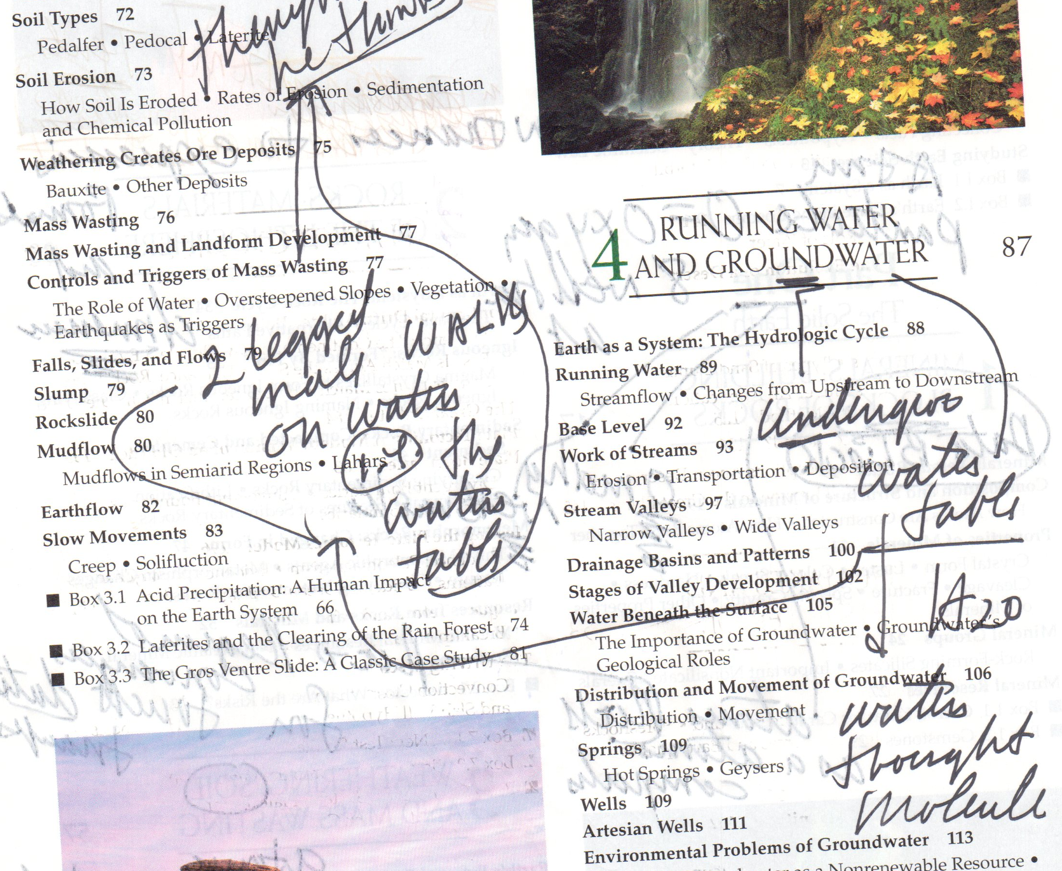 Soil Types 72
Pedalfer • Pedocal • Laterite
he thinks
Soil Erosion 73
How Soil Is Eroded • Rates of Erosion • Sedimentation
and Chemical Pollution
Weathering Creates Ore Deposits 75
Bauxite • Other Deposits
Mass Wasting 76
Mass Wasting and Landform Development 77
Controls and Triggers of Mass Wasting 77
The Role of Water • Oversteepened Slopes • Vegetation •
Earthquakes as Triggers
Falls, Slides, and Flows 79
Slump 79
Rockslide 80
Mudflow 80
Mudflows in Semiarid Regions • Lahars
Earthflow 82
Slow Movements 83
Creep • Solifluction
■ Box 3.1 Acid Precipitation: A Human Impact
on the Earth System 66
■ Box 3.2 Laterites and the Clearing of the Rain Forest 74
■ Box 3.3 The Gros Ventre Slide: A Classic Case Study 81
2 legged
male WALKS
on water
i.e. the
water
table
4 RUNNING WATER
AND GROUNDWATER 87
Earth as a System: The Hydrologic Cycle 88
Running Water 89
Streamflow • Changes from Upstream to Downstream
Base Level 92
Work of Streams 93
Erosion • Transportation • Deposition
Stream Valleys 97
Narrow Valleys • Wide Valleys
Drainage Basins and Patterns 100
Stages of Valley Development 102
Water Beneath the Surface 105
The Importance of Groundwater • Groundwater's
Geological Roles
Distribution and Movement of Groundwater 106
Distribution • Movement
Springs 109
Hot Springs • Geysers
Wells 109
Artesian Wells 111
Environmental Problems of Groundwater 113
as a Nonrenewable Resource •
water
table
H20
water
thought
molecule